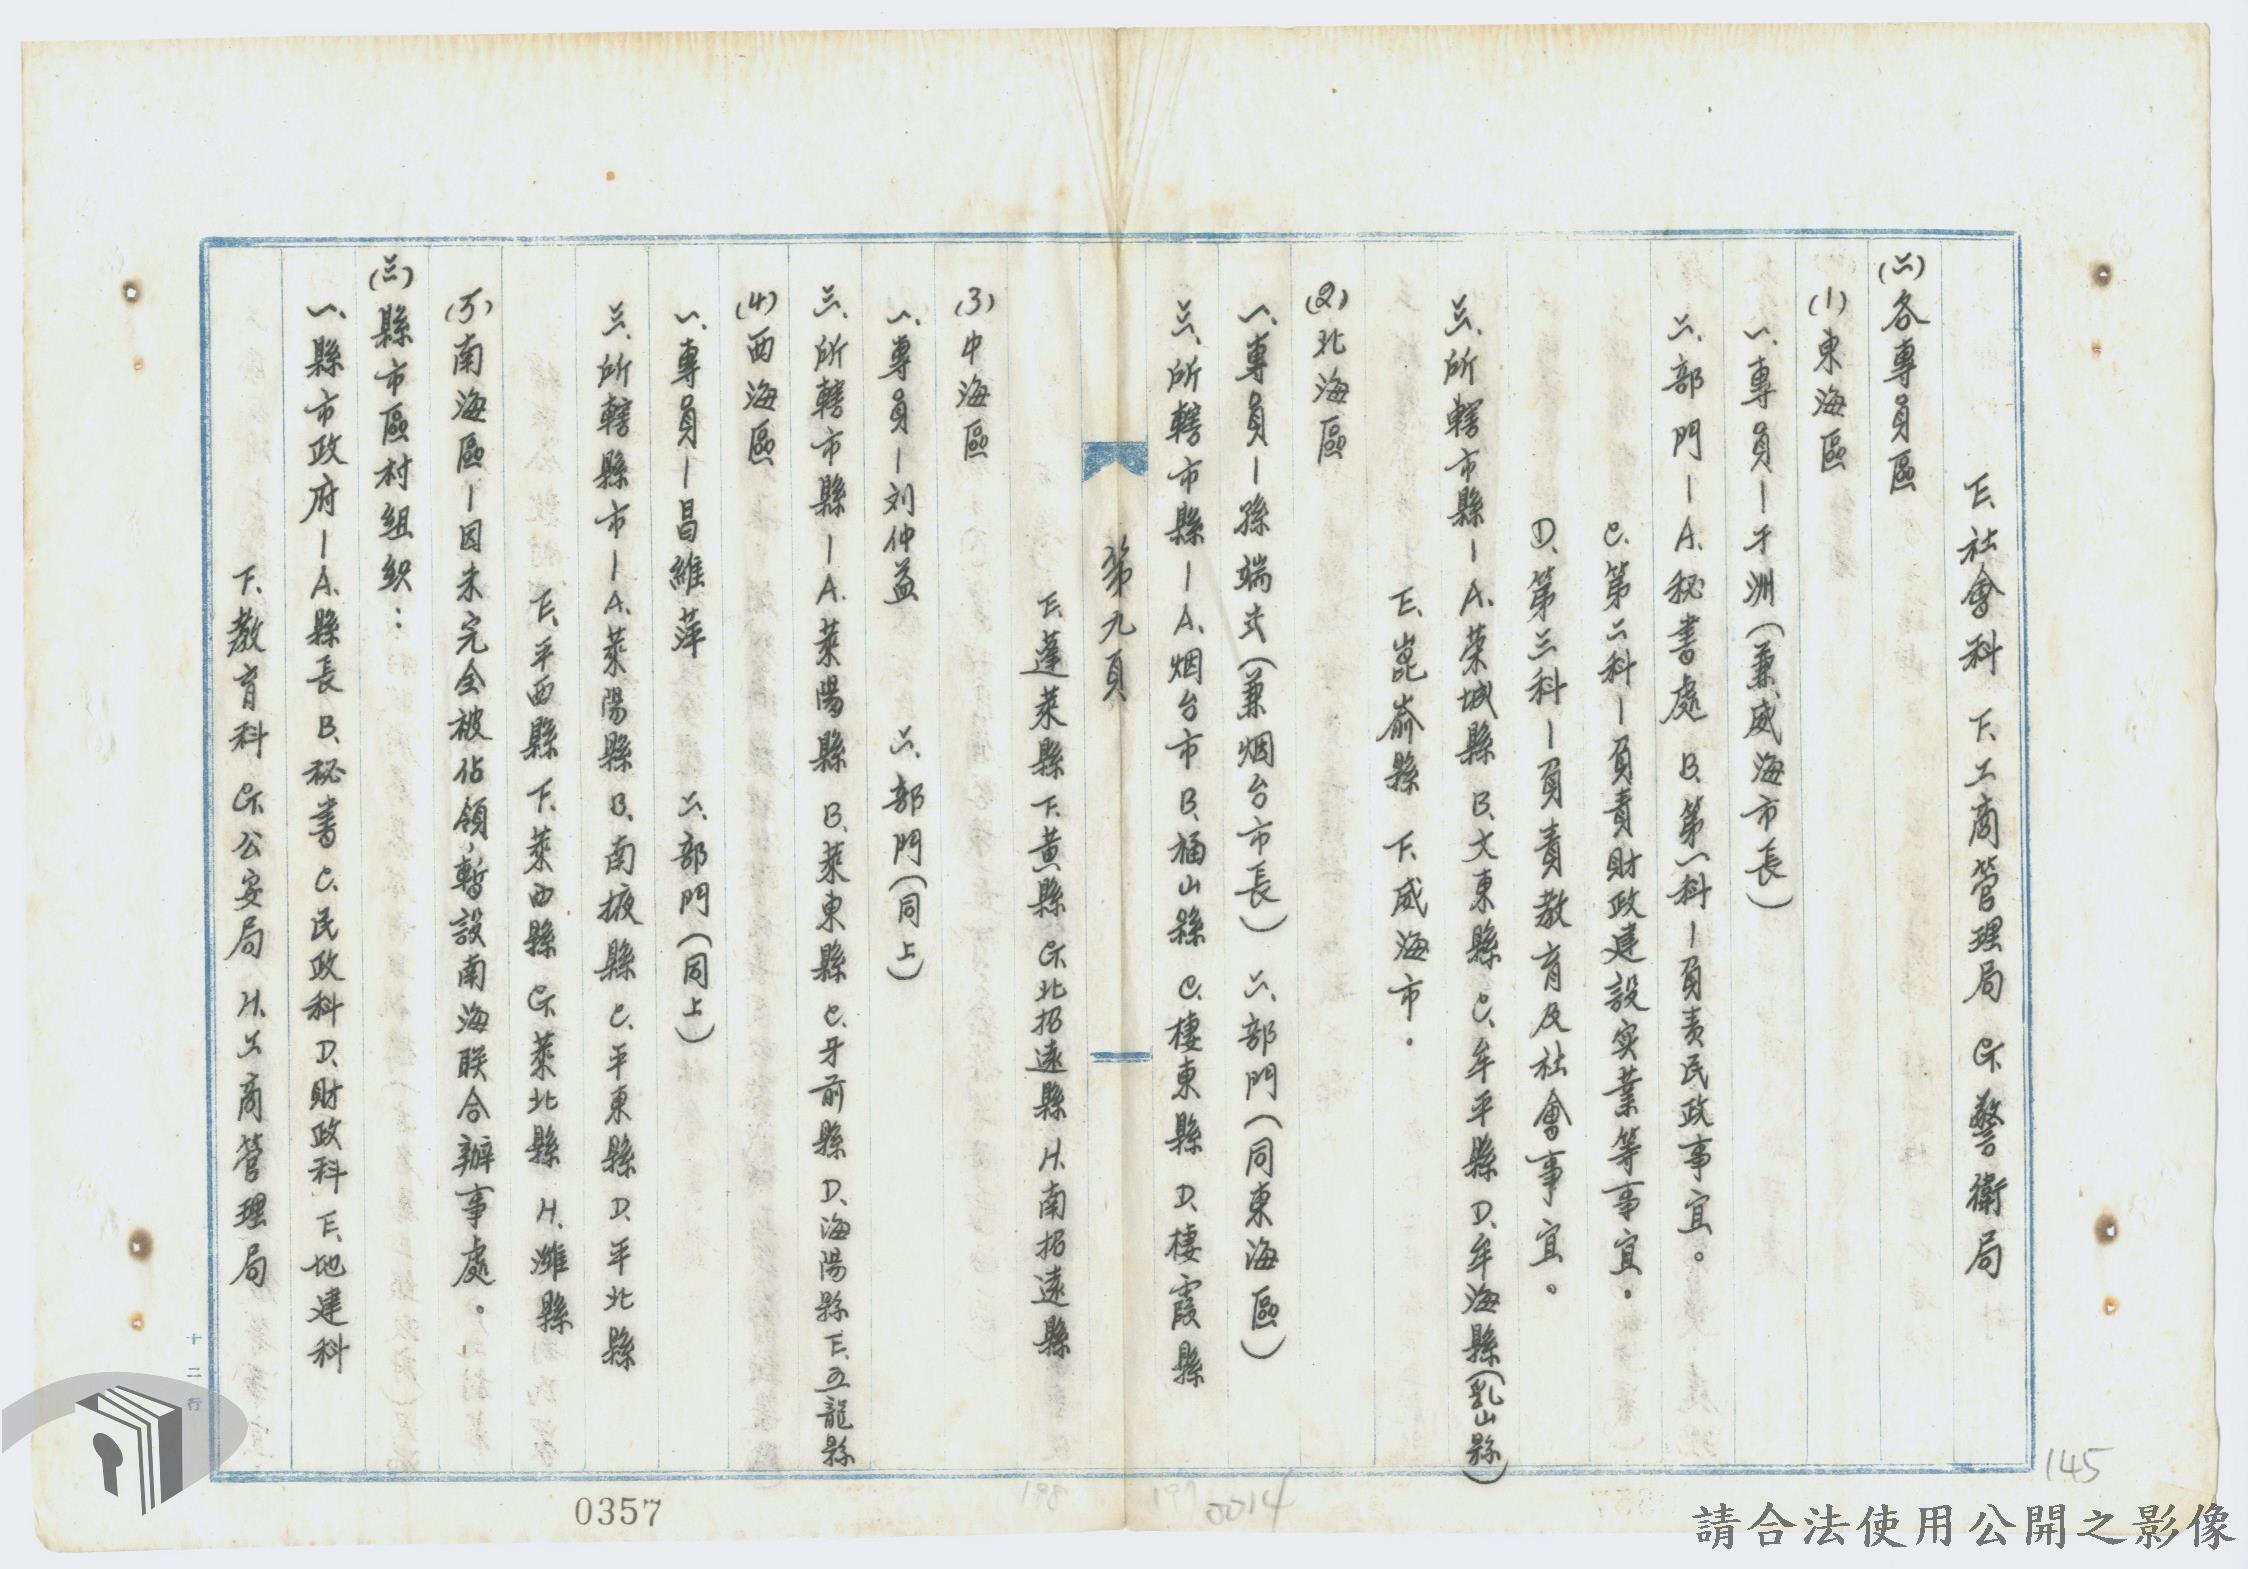 E.社會科 F.工商管理局 G.警衛局
(二)各專員區
(1)東海區
一、專員－于洲(兼威海市長)
二、部門－A.秘書處 B.第一科－負責民政事宜。
C.第二科－負責財政建設实業等事宜。
D.第三科－負責教育及社會事宜。
三、所轄市縣－A.榮城縣 B.文東縣 C.牟平縣 D.牟海縣(乳山縣)
E.崑崳縣 F.威海市.
(2)北海區
一、專員－孫端式(兼烟台市長) 二、部門(同東海區)
三、所轄市縣－A.烟台市 B.福山縣 C.棲東縣 D.棲霞縣
第九頁
E.蓬萊縣 F.黄縣 G.北招遠縣 H.南招遠縣
(3)中海區
一、專員－刘仲益 二、部門(同上)
三、所轄市縣－A.萊陽縣 B.萊東縣 C.牙前縣 D.海陽縣 E.五龍縣
(4)西海區
一、專員－昌維萍 二、部門(同上)
三、所轄縣市－A.萊陽縣 B.南掖縣 C.平東縣 D.平北縣
E.平西縣 F.萊西縣 G.萊北縣 H.濰縣
(5)南海區－因未完全被佔領,暫設南海联合辦事處。
(三)縣市區村組织：
一、縣市政府－A.縣長 B.秘書 C.民政科 D.財政科 E.地建科
F.教育科 G.公安局 H.工商管理局
十二行
0357
0014
145
請合法使用公開之影像